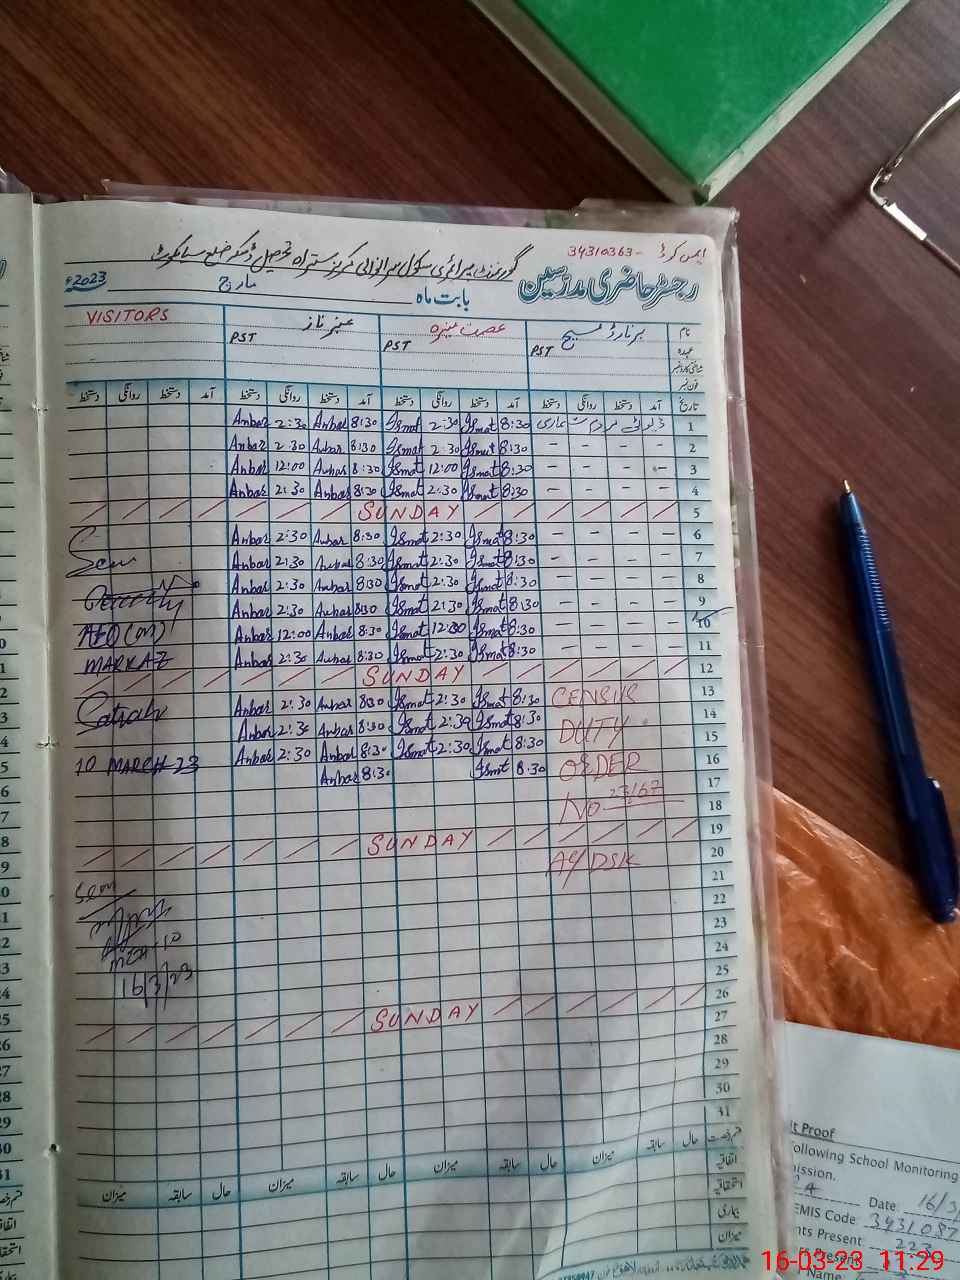 ایمس کوڈ -34310363
گورنمنٹ پرائمری سکول میرانوالی گریز ستراہ تحصیل ڈسکہ ضلع سیالکوٹ
رجسٹر حاضری مدرسین
بابت ماہ مارچ 2023ء
نام برنارڈ مسیح عصمت منیزہ عنبر ناز VISITORS
عہدہ PST PST PST
شناختی کارڈ نمبر
فون نمبر
تاریخ آمد دستخط روانگی دستخط آمد دستخط روانگی دستخط آمد دستخط روانگی دستخط آمد دستخط روانگی دستخط
Anbar 2:30 Anbar 8:30 Ismat 2:30 Ismat 8:30 ڈیوٹی مردم شماری 1
Anbar 2:30 Anbar 8:30 Ismat 2:30 Ismat 8:30 – – – – 2
Anbar 12:00 Anbar 8:30 Ismat 12:00 Ismat 8:30 – – – – 3
Anbar 2:30 Anbar 8:30 Ismat 2:30 Ismat 8:30 – – – – 4
SUNDAY 5
Anbar 2:30 Anbar 8:30 Ismat 2:30 Ismat 8:30 – – – – 6
Anbar 2:30 Anbar 8:30 Ismat 2:30 Ismat 8:30 – – – – 7
Anbar 2:30 Anbar 8:30 Ismat 2:30 Ismat 8:30 – – – – 8
Anbar 2:30 Anbar 8:30 Ismat 2:30 Ismat 8:30 – – – – 9
AEO (m) Anbar 12:00 Anbar 8:30 Ismat 12:00 Ismat 8:30 – – – – 10
MARKAZ Anbar 2:30 Anbar 8:30 Ismat 2:30 Ismat 8:30 – – – – 11
SUNDAY 12
Satrah Anbar 2:30 Anbar 8:30 Ismat 2:30 Ismat 8:30 CENSUS 13
Anbar 2:30 Anbar 8:30 Ismat 2:30 Ismat 8:30 DUTY 14
10 MARCH-23 Anbar 2:30 Anbar 8:30 Ismat 2:30 Ismat 8:30 15
Anbar 8:30 Ismat 8:30 ORDER 16
17
No 23167 18
SUNDAY 19
AC/DSK 20
Seen 21
22
23
MEA-10 24
16/3/23 25
SUNDAY 26
27
28
29
30
31
حال سابقہ میزان حال سابقہ میزان حال سابقہ میزان حال سابقہ میزان
اتفاقیہ
استحقاقیہ
بیماری
میزان
t Proof
ollowing School Monitoring
ission.
Date: 16/3/
EMIS Code: 3431087
nts Present: 223
f Present:
Name
16-03-23 11:29